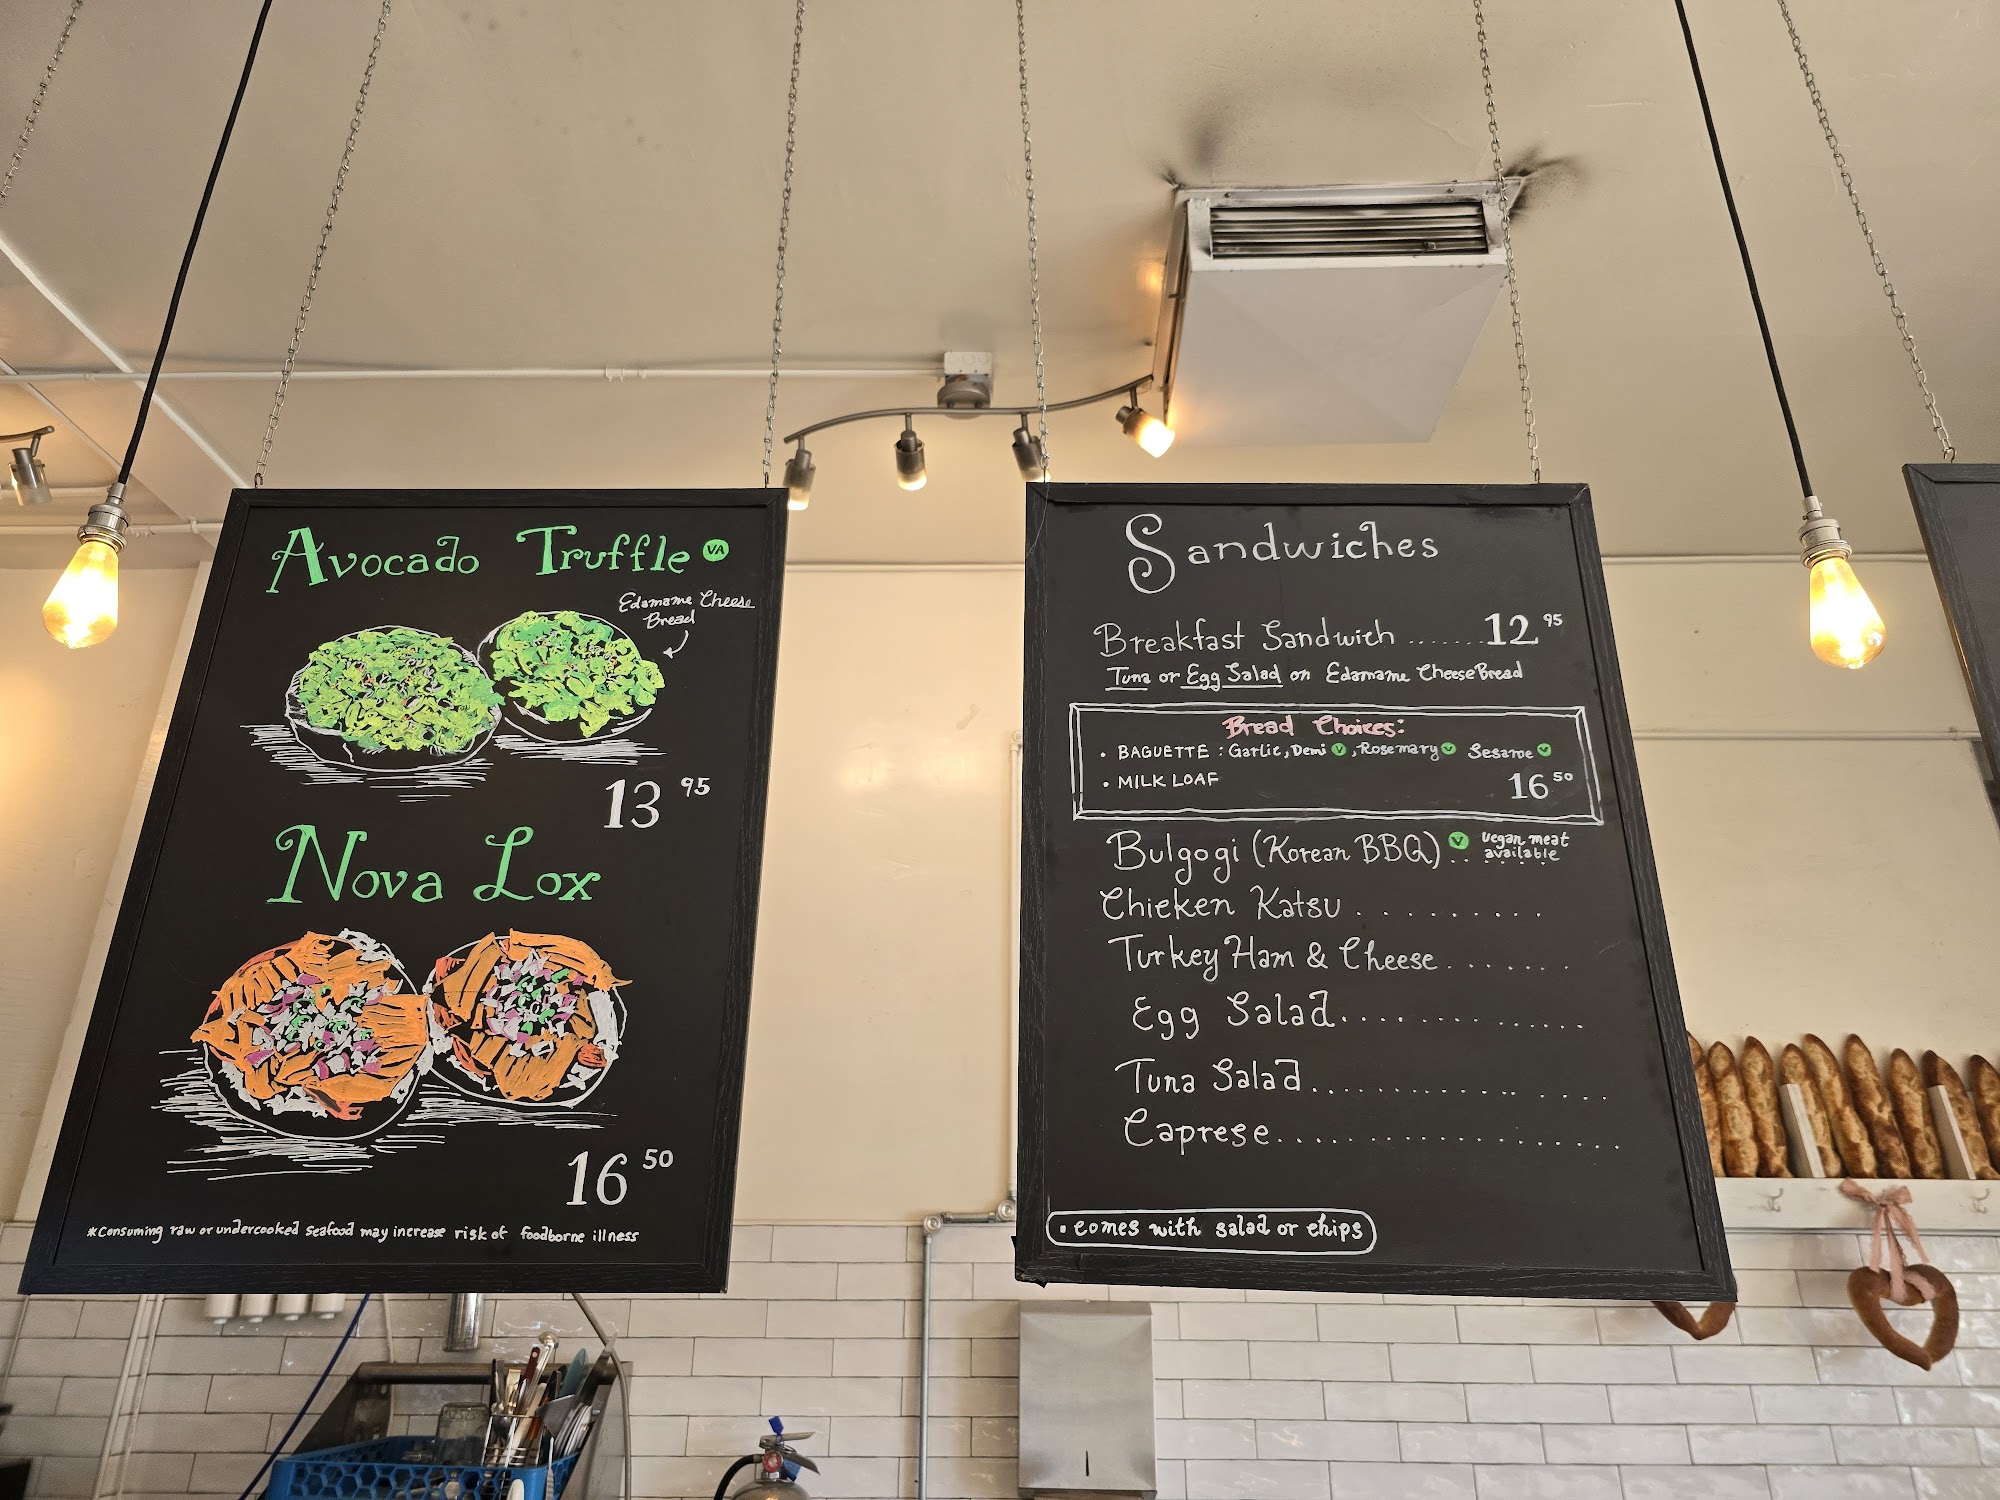 Avocado Truffle VA
Edamame Cheese
Bread
13 95
Nova Lox
16 50
*Consuming raw or undercooked seafood may increase risk of foodborne illness
Sandwiches
Breakfast Sandwich ....... 12 95
Tuna or Egg Salad on Edamame Cheese Bread
Bread Choices:
• BAGUETTE : Garlic, Demi V, Rosemary V Sesame V
• MILK LOAF 16 50
Bulgogi (Korean BBQ) V vegan meat
available
Chicken Katsu . . . . . . . . . .
Turkey Ham & Cheese . . . . . . .
Egg Salad . . . . . . . . . . . . . .
Tuna Salad . . . . . . . . . . . . . . . .
Caprese . . . . . . . . . . . . . . . . . . . .
• comes with salad or chips